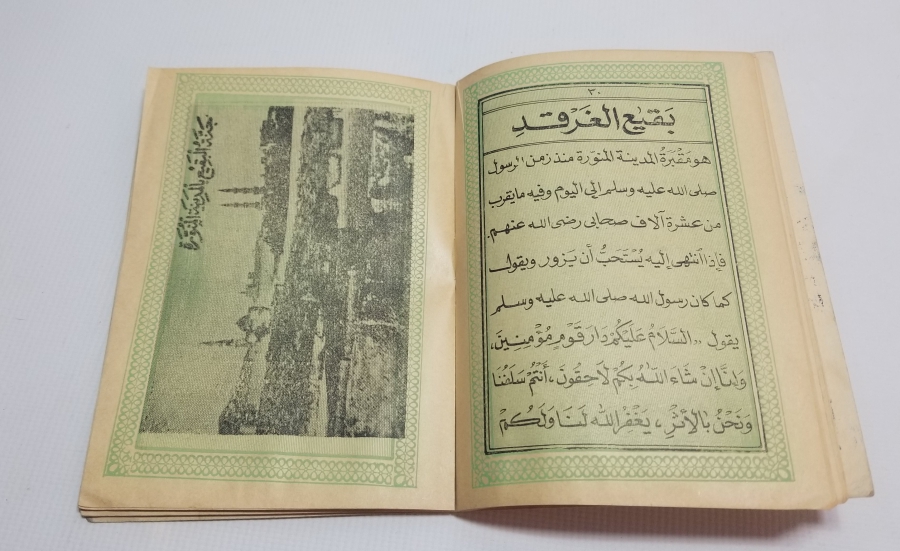 ٣٠
بَقيْع الغَرْقَدِ
هو مَقْبَرَةُ المدينة المنوَرة منذ زمن الرسول
صلى الله عليه وسلم إلى اليوم وفيه ما يقرب
من عشرة آلاف صحابى رضى الله عنهم.
فإذا انتهى إليه يُسْتَحَبُّ أن يَزور ويقول
كما كان رسول الله صلى الله عليه وسلم
يقول «السَّلَامُ عَلَيْكُمْ دَارَ قَومٍ مُؤْمِنِينَ،
وَإِنَّا إِنْ شَاءَ اللهُ بِكُمْ لَاحِقُونَ، أَنْتُمْ سَلَفُنَا
وَنَحْنُ بِالأَثَرِ، يَغْفِرُ اللهُ لَنَا وَلَكُمْ
جنة البقيع بالمدينة المنورة